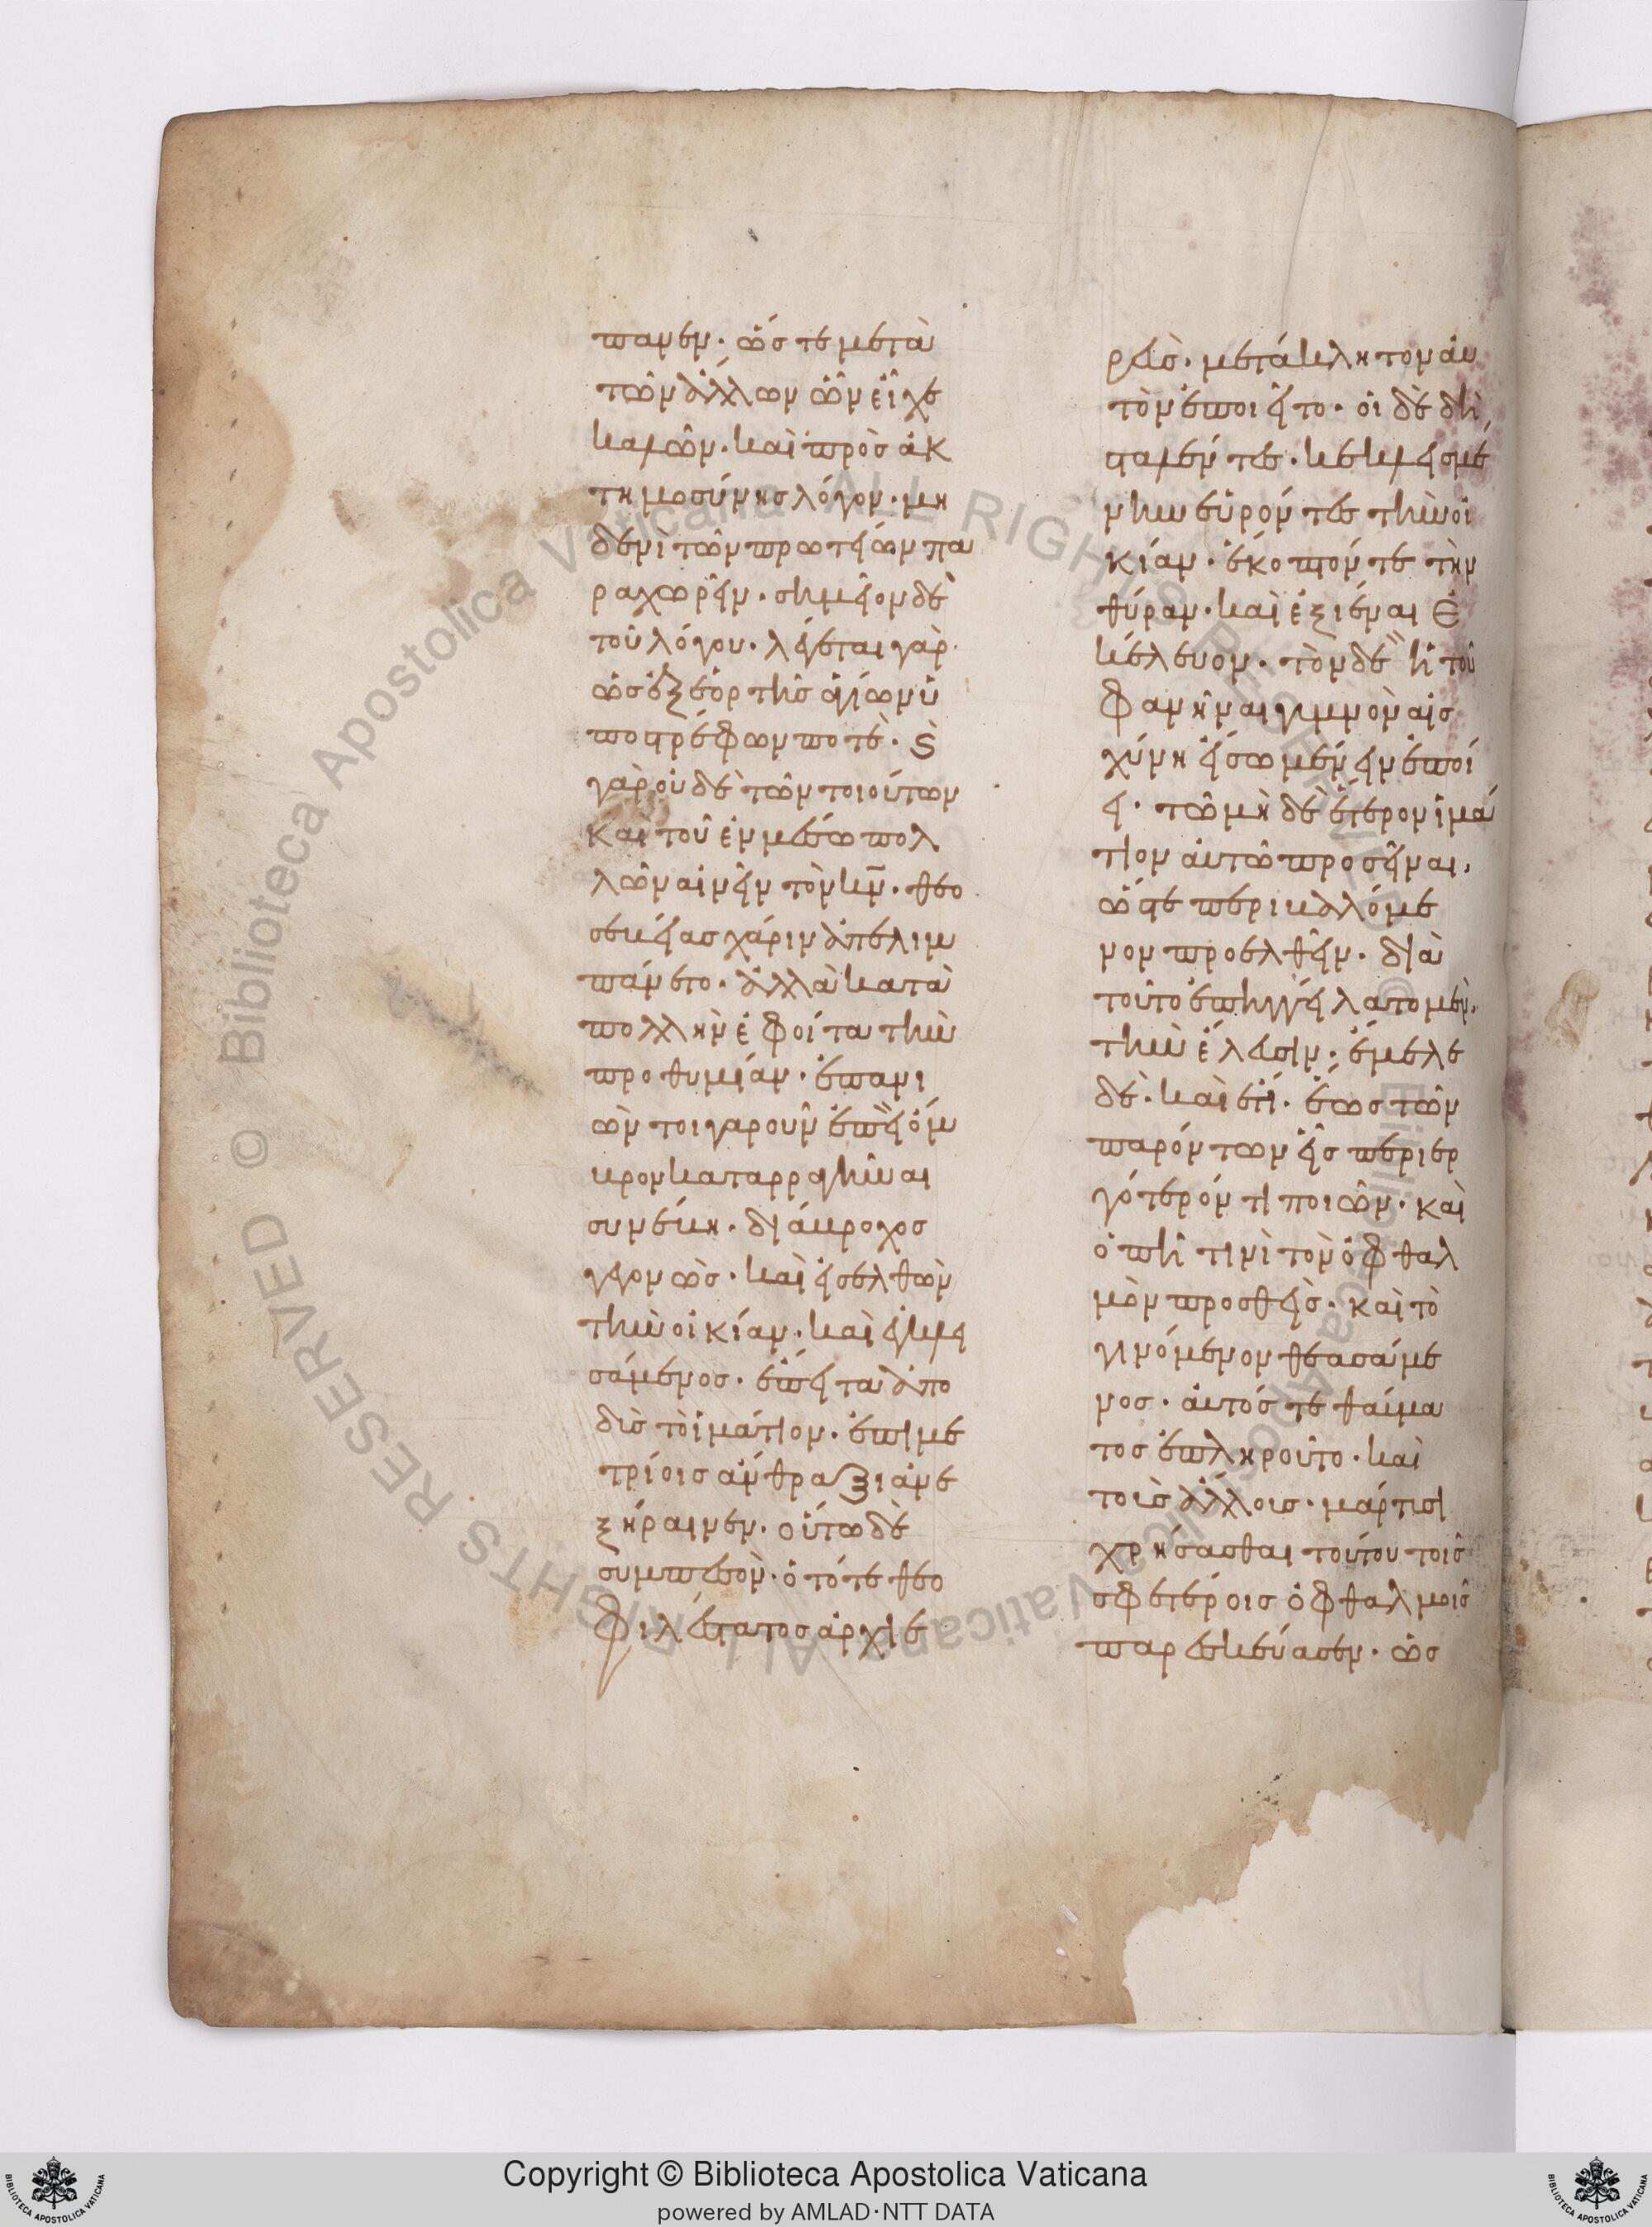 πανεν· ὥς τε μετὰ
τῶν ἄλλων ὧν εἶχε
καλῶν· καὶ πρὸς ἀκ
τημοσύνης λόγον· μη
δενὶ τῶν πρωτείων πα
ραχωρεῖν· σημεῖον δὲ
τοῦ λόγου· λέγεται γὰρ
ὡς ἐξ ἑόρτης ἁγίων ὑ
ποστρέφων ποτὲ· ϛ
γὰρ οὐδὲ τῶν τοιούτων
καὶ τοῦ ἐν μέσω πολ
λῶν αἰνεῖν τὸν κν̄· θεο
σεκείας χάριν ἀπελιμ
πάνετο· ἀλλὰ κατὰ
πολλὴν ἐφοίτα τὴν
προθυμίαν· ἐπανι
ὼν τοιγαροῦν ἐπεὶ ὄμ
κρον καταρραγῆναι
συνέκη· διάκροχος
γεγονὼς· καὶ εἰσελθὼν
τὴν οἰκίαν· καὶ ἐγκλει
σάμενος· ἔπειτα ἀπο
δὺς τὸ ἱμάτιον· ἐπὶ με
τρίοις ἄνθραξι ἀνε
ξήραινεν· οὕτω δὲ
συμπεσὸν· ὁ τότε θεο
φιλέστατος ἀρχιε
ρεὺς· μετάκλητον αὐ
τὸν ἐποιεῖτο· οἱ δὲ δὴ
σταλέντες· κεκλεισμέ
νην εὑρόντες τὴν οἰ
κίαν· ἔκοπτόν τε τὴν
θύραν· καὶ ἐξιέναι ἐ
κέλευον· τὸν δὲ ἡ τοῦ
φανῆναι γυμνὸν αἰσ
χύνη εἴσω μένειν ἐποί
ει· τῶ μὴ δὲ ἕτερον ἱμά
τιον αὐτῶ προσεῖναι,
ὥστε περικαλλόμε
νον προσελθεῖν· διὰ
τοῦτο ἐπηγγείλατο μὲν·
τὴν ἔλευσιν· ἔμελε
δὲ· καὶ ἔτι· ἕως τῶν
παρόντων εἷς περιερ
γότερόν τι ποιῶν· καὶ
ὀπῆ τινὶ τὸν ὀφθαλ
μὸν προσθεὶς· καὶ τὸ
γινόμενον θεασάμε
νος· αὐτός τε θαύμα
τος ἐπληροῦτο· καὶ
τοῖς ἄλλοις· μάρτυσι
χρήσασθαι τούτου τοῖς
σφετέροις ὀφθαλμοῖς
παρεσκεύασεν· ὡς
Copyright © Biblioteca Apostolica Vaticana
powered by AMLAD·NTT DATA